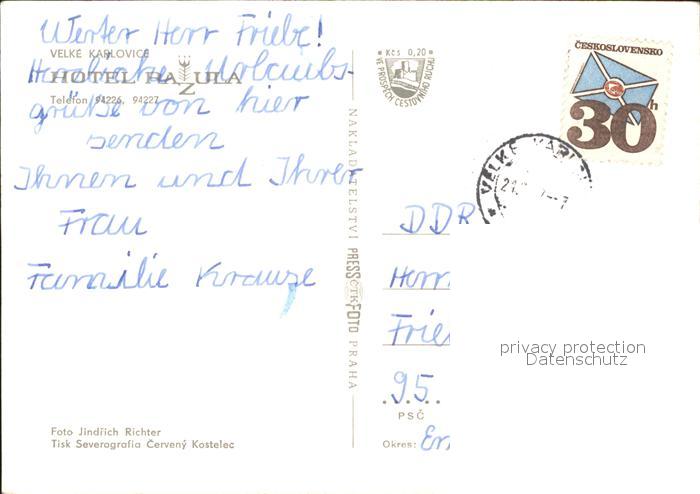 Werter Herr Friebe!
VELKÉ KARLOVICE
Herzliche Urlaubs-
HOTEL RAZULA
Telefon 94226, 94227
grüße von hier
senden
Ihnen und Ihrer
Frau
Familie Krause
Foto Jindřich Richter
Tisk Severografia Červený Kostelec
NAKLADATELSTVÍ PRESSFOTO PRAHA
ČTK
Kčs 0,20
VE PROSPĚCH CESTOVNÍHO RUCHU
ČESKOSLOVENSKO
30h
VELKÉ KARLO
DDR
Herr
Frie
95
PSČ
Okres:
privacy protection
Datenschutz